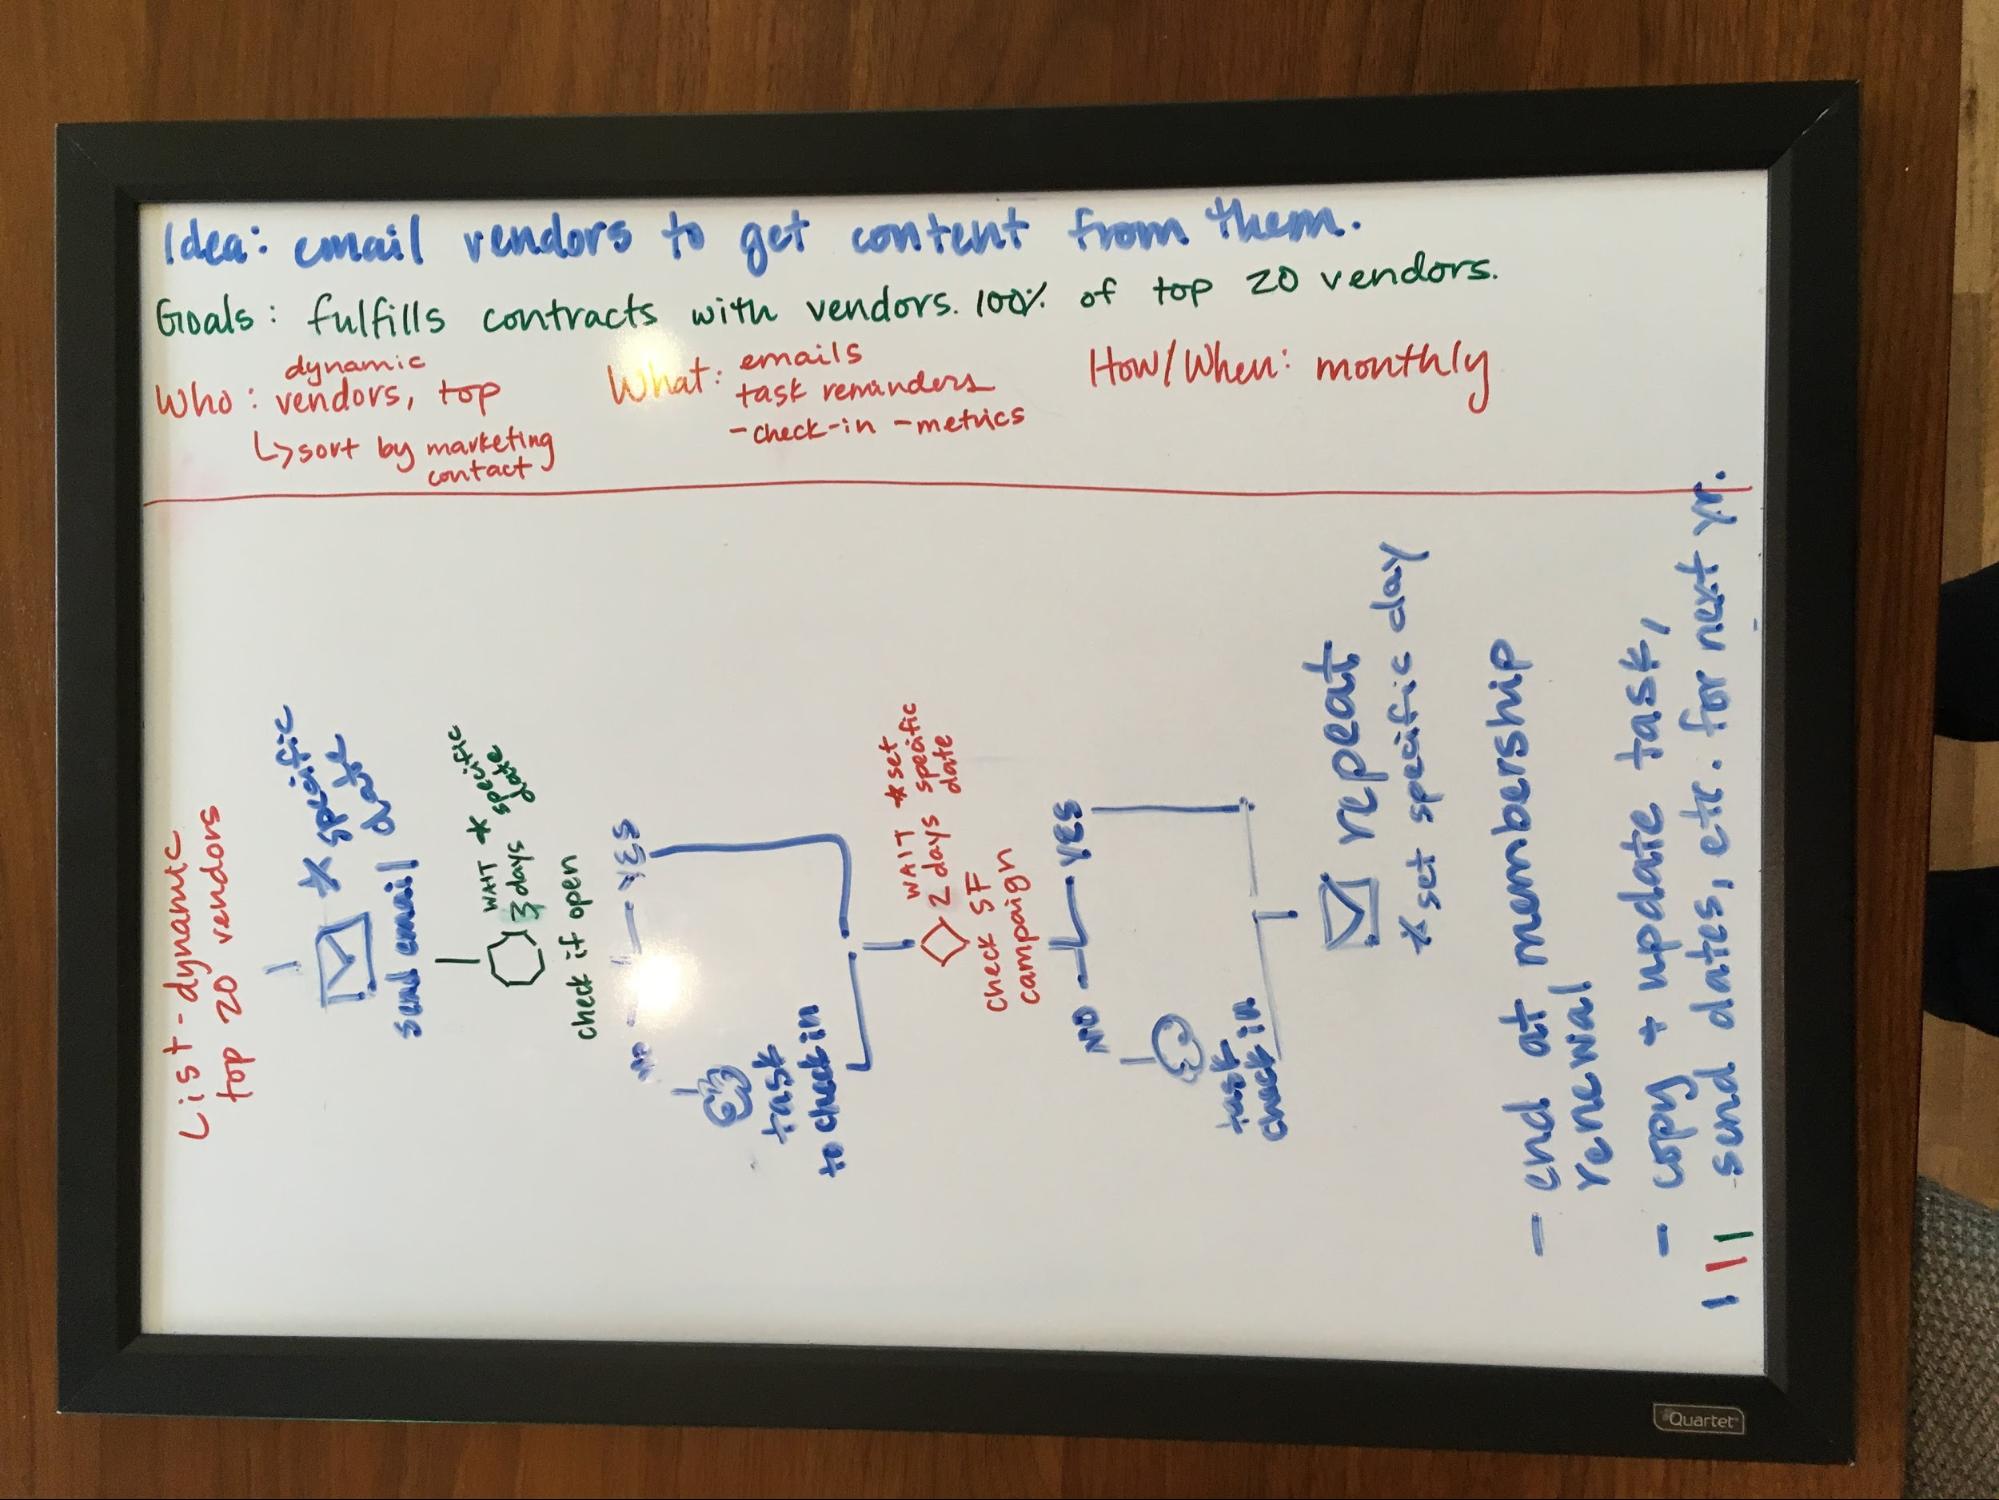 Idea: email vendors to get content from them.
Goals: fulfills contracts with vendors. 100% of top 20 vendors.
dynamic
Who: vendors, top
↳sort by marketing
contact
What: emails
task reminders
-check-in -metrics
How/When: monthly
List-dynamic
top 20 vendors
* specific
date
send email
WAIT * specific
3 days date
check if open
NO YES
task
to check in
WAIT *set
2 days specific
date
check SF
campaign
NO YES
task
check in
repeat
*set specific day
- end at membership
renewal
- copy + update task,
send dates, etc. for next yr.
Quartet